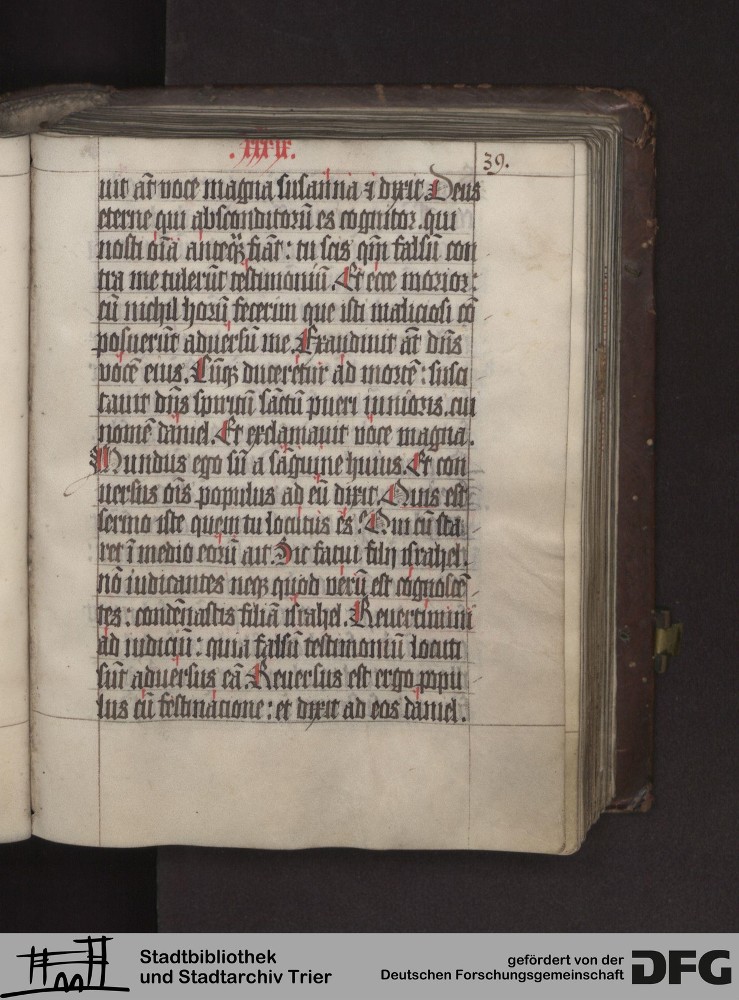 .xxxix.
39.
uit at̄ voce magna susanna ⁊ dixit. Deus
eterne qui absconditorū es cognitor. qui
nosti oīa anteq̄ꝫ fiāt: tu scis qm̄ falsū con
tra me tulerūt testimoniū. Et ecce morior:
cū nichil horū fecerim que isti maliciosi cō
posuerūt aduersū me. Exaudiuit at̄ dn̄s
vocē eius. Cūqꝫ duceretur ad mortē: susci
tauit dn̄s spiritū sāctū pueri iunioris. cui
nomē daniel. Et exclamauit voce magna.
Mundus ego sū a sāguine huius. Et con
uersus oīs populus ad eū dixit. Quis est
sermo iste quem tu locutus es? Qui cū sta
ret ī medio eorū ait. Sic fatui filij israhel.
nō iudicantes neqꝫ quod verū est cognoscē
tes: condēnastis filiā israhel. Reuertimini
ad iudiciū: quia falsū testimoniū locuti
sūt aduersus eā. Reuersus est ergo popu
lus cū festinacione: et dixit ad eos daniel.
Stadtbibliothek
und Stadtarchiv Trier
gefördert von der
Deutschen Forschungsgemeinschaft
DFG